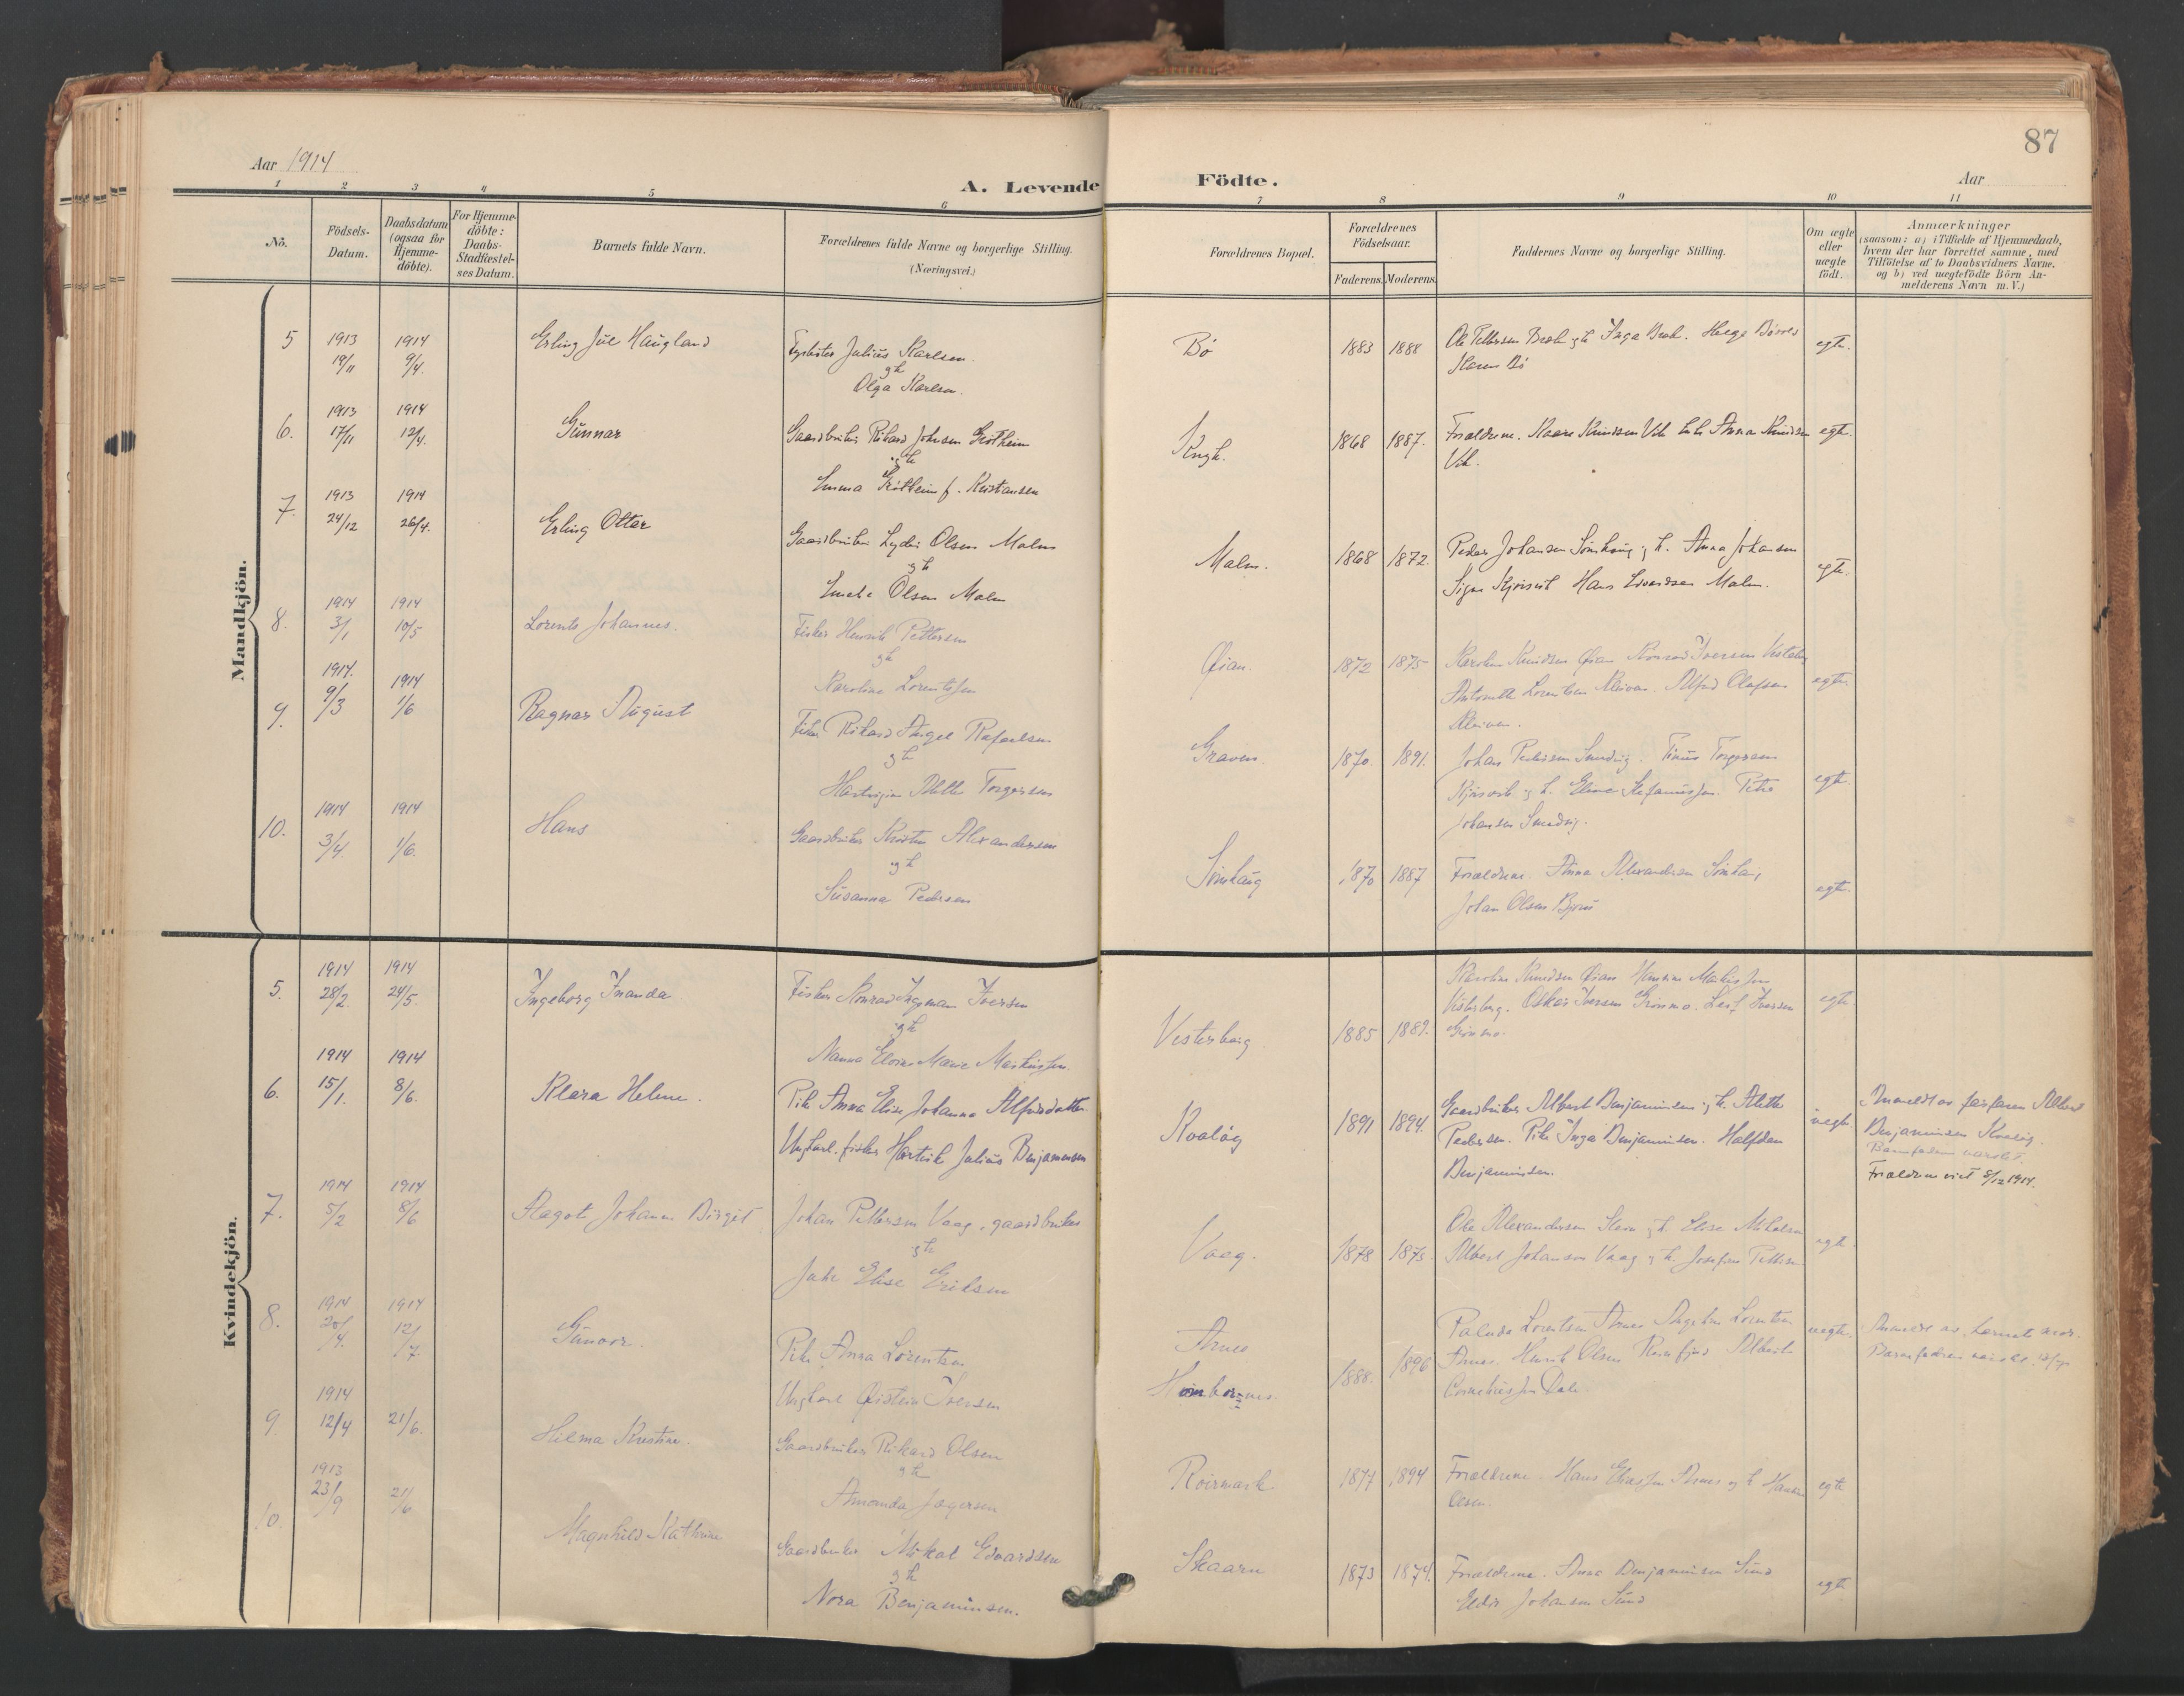 87
Aar 1914
A. Levende Födte.
Aar
1 2 3 4 5 6 7 8 9 10 11
No.
Födsels-Datum.
Daabsdatum (ogsaa for Hjemme-döbte).
For Hjemme-döbte: Daabs-Stadfæstel-ses Datum.
Barnets fulde Navn.
Forældrenes fulde Navne og borgerlige Stilling. (Næringsvei.)
Forældrenes Bopæl.
Forældrenes Födselsaar.
Faderens. Moderens.
Faddernes Navne og borgerlige Stilling.
Om ægte eller uægte födt.
Anmærkninger (saasom: a) i Tilfælde af Hjemmedaab, hvem der har forrettet samme, med Tilföielse af to Daabsvidners Navne, og b) ved uægtefödte Börn An-melderens Navn m. V.)
Mandkjön.
5 1913 19/11 1914 9/4. Erling Jul Haugland
Julius Karlsen
gh
Olga Karlsen.
Bø 1883 1888
Ole Pettersen gh Inga
Karen Bø
egte.
6. 1913 17/11 1914 12/4. Gunnar
Gaardbruker Rikard Johnsen Grøtheim
gh
Emma Grøtheim f. Kristiansen
1868 1887.
Forældrene. Kaare Knudsen Vik Anna Knudsen
Vik.
egte.
7. 1913 24/12 1914 26/4. Erling Otter
Gaardbruker Lyder Olsen Malm
gh
Olsen Malm
Malm. 1868 1872.
Peder Johansen gh. Anna Johansen
Signe Hans Malm.
egte.
8. 1914 3/1 1914 10/5 Lorents Johannes.
Fisker Henrik Pettersen
gh
Karoline Lorentsen
Øian. 1872 1875
Karoline Knudsen Øian Konrad Iversen
Lorentsen Alfred Olafsen
egte.
9. 1914. 9/3 1914 1/6 Ragnar August
Fisker Rikard Angel Rafaelsen
gh
Torgersen
Graven. 1870. 1891.
Johan Pedersen Smedvig. Torgersen
gh. Petra
Johansen Smedvig.
egte.
10. 1914 3/4. 1914 1/6. Hans
Gaardbruker Alexandersen
gh
Susanna Pedersen
1870 1887
Forældrene. Anna Alexandersen
Johan Olsen
egte.
Kvindekjön.
5. 1914 28/2. 1914 24/5. Ingeborg Inanda
Fisker Konrad Ingeman Iversen
gh
Nanna Marie Markussen.
Vesterberg 1885 1889.
Karoline Knudsen Øian Hansine Markussen
Vesterberg. Oskar Iversen Grønmo. Leif Iversen
Grønmo.
egte.
6. 1914 15/1. 1914 8/6. Klara Helene.
Pike Anna Elise Johanna Alfredsdatter
Ungkarl. fisker Hartvik Julius Benjaminsen
Kvaløy 1891 1894.
Gaardbruker Albert Benjaminsen gh. Alette
Pedersen. Pike Inga Benjaminsen. Halfdan
Benjaminsen.
uegte.
Anmeldt av farfaren Albert
Benjaminsen Kvaløy.
Barnefaderen varslet.
Forældrene viet 8/12 1914.
7. 1914 5/2 1914 8/6 Aagot Johanne Birgit
Johan Pettersen Vaag, gaardbruker
gh
Elise Eriksen
Vaag. 1878 1875.
Ole Alexandersen gh. Elise Mikalsen
Albert Johansen Vaag gh. Josefine Pettersen
egte
8. 1914 20/4. 1914 12/7 Gunvor.
Pike Anna Lorentsen
Ungkarl Øistein Iversen
Arnes
1888. 1896
Lorentsen Arnes Lorentsen
Arnes. Henrik Olsen
Corneliussen Dale.
uegte.
Anmeldt av barnets mor.
Barnefaderen varslet
9 1914 12/4 21/6. Hilma Kristine.
Gaardbruker Rikard Olsen
gh
Amanda Jægersen
Røirmark 1877 1894
Forældrene. Hans Eliassen Arnes og h.
Olsen.
egte
10. 1913 23/9 21/6 Magnhild Kathrine
Gaardbruker Mikal Edvardsen
gh
Nora Benjaminsen.
Skaarn 1873 1874.
Forældrene. Anna Benjaminsen Sund
Johansen Sund
egte